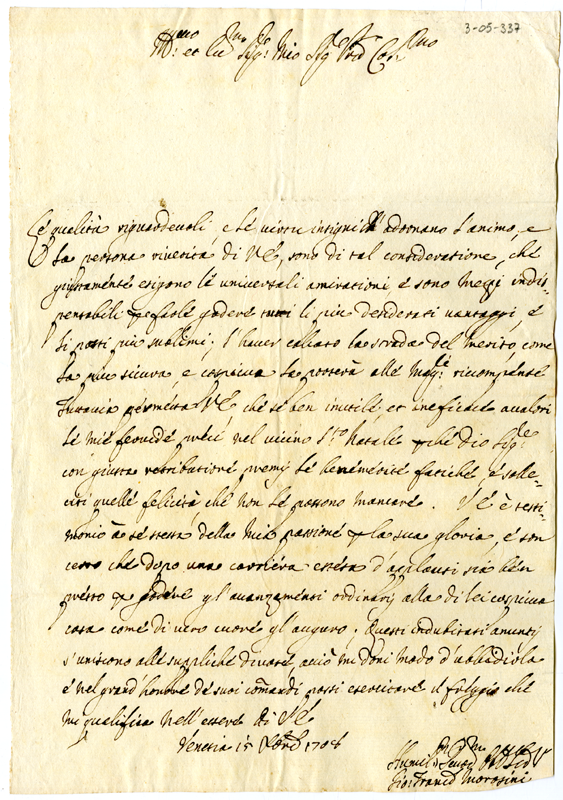 3-05-337
Ill.mo et Ecc.mo Sig.r Mio Sig.r P.ron Col.mo
Le qualità riguardevoli, e le virtù insigni ch' adornano l'animo, e
la persona riverita di V.E., sono di tal consideratione, che
giustamente esigono le universali amirationi e sono mezzi indis-
pensabili per farle godere tutti li più desiderati vantaggi, e
li posti più sublimi; l'haver calcato la strada del merito, come
la più sicura, e cospicua la porterà alle ricompense
Tuttavia permetta V.E. che se ben inutile, et inefficace avalori
le mie fervide preci nel vicino S.to Natale perche Dio Sig.re
con giusta retributione premij le benemerite fatiche, e solle-
citi quelle felicità, che non le possono mancare. V.E. è testi-
monio à se stessa della mia passione per la sua gloria, e son
certo che dopo una carriera estesa d'applausi sia ben
presto per godere gl'avanzamenti ordinarij alla di lei cospicua
casa come di vero cuore gl'auguro. Questi indubitati anuntij
s'uniscono alle suppliche divote, acciò mi doni modo d'ubbidirla
e nel grand'honore de suoi comandi possi esercitare il
mi qualifica nell'essere di V.E.
Venetia 15 Xbre 1708
Humil.mo Obb.mo Ser.
Gio: Franc.o Morosini